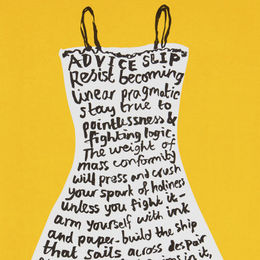 ADVICE SLIP
Resist becoming
linear pragmatic
stay true to
pointlessness &
fighting logic.
The weight of
mass conformity
will press and crush
your spark of holiness
unless you fight it-
arm yourself with ink
and paper- build the ship
that sails across despair
in it,